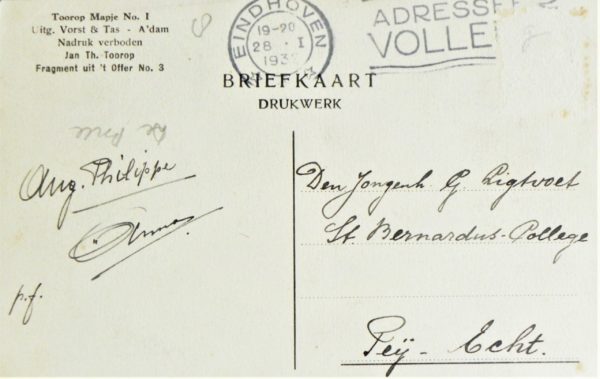 Toorop Mapje No. 1
Uitg. Vorst & Tas - A'dam
Nadruk verboden
Jan Th. Toorop
Fragment uit 't Offer No. 3
EINDHOVEN
19-20
28 · I
ADRESSE
VOLLE
BRIEFKAART
DRUKWERK
Aug. Philippe
p.f.
Den Jongenh. G. Ligtvoet
St. Bernardus-College
Peÿ - Echt.